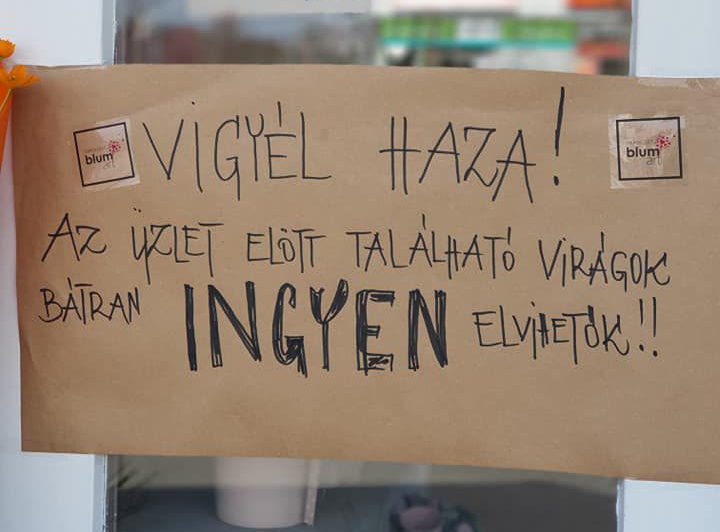 VIGYÉL HAZA!
blum
art
blum
art
AZ ÜZLET ELŐTT TALÁLHATÓ VIRÁGOK
BÁTRAN INGYEN ELVIHETŐK!!